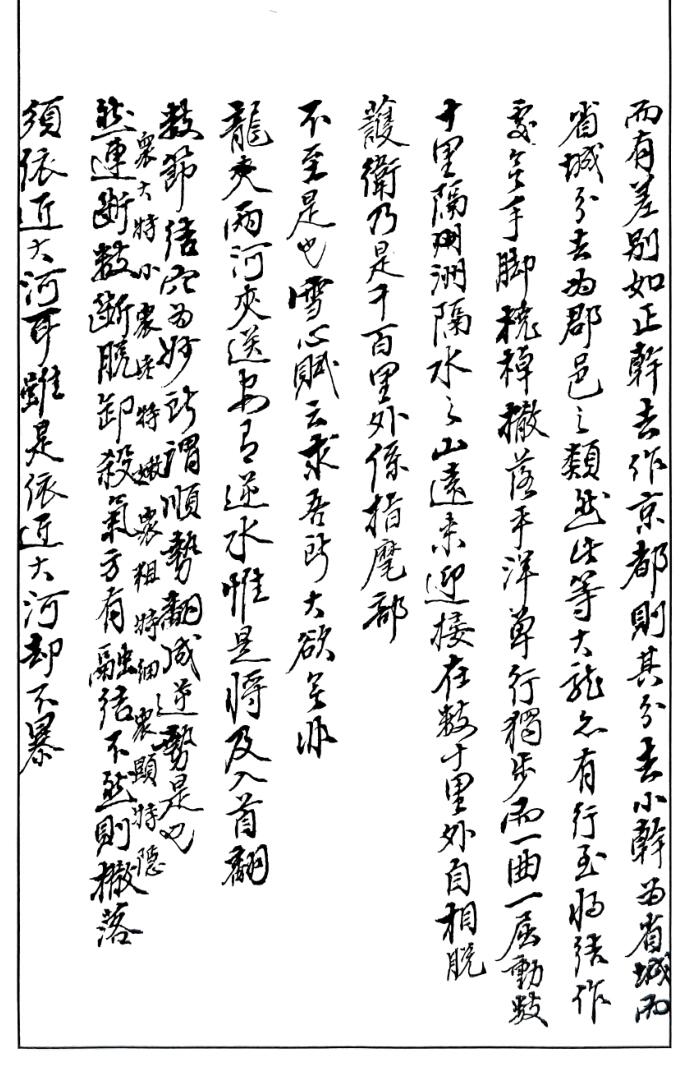 而有差別如正幹去作京都則其分去小幹为省城而
省城分去为郡邑之類然此等大龍亦有行至将結作
處无手脚橈棹撒落平洋单行獨步而一曲一屈動数
十里隔州隔水之山遠来迎接在数十里外自相脱
護衛乃是千百里外係指麾部
不至是也雪心賦云求吾所大欲无非
龍夾兩河夾送安有逆水惟是将及入首翻
数節結穴为妙所謂順勢翻成逆勢是也
衆大特小衆老特嫩衆粗特細衆顯特隐
然連断数断脱卸殺氣方有融結不然則撒落
須依近大河耳雖是依近大河却不暴